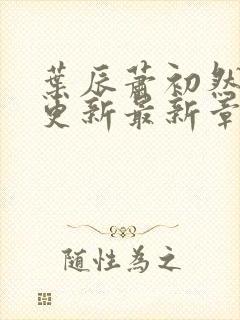 葉辰蕭初然
更新最新章
隨性為之